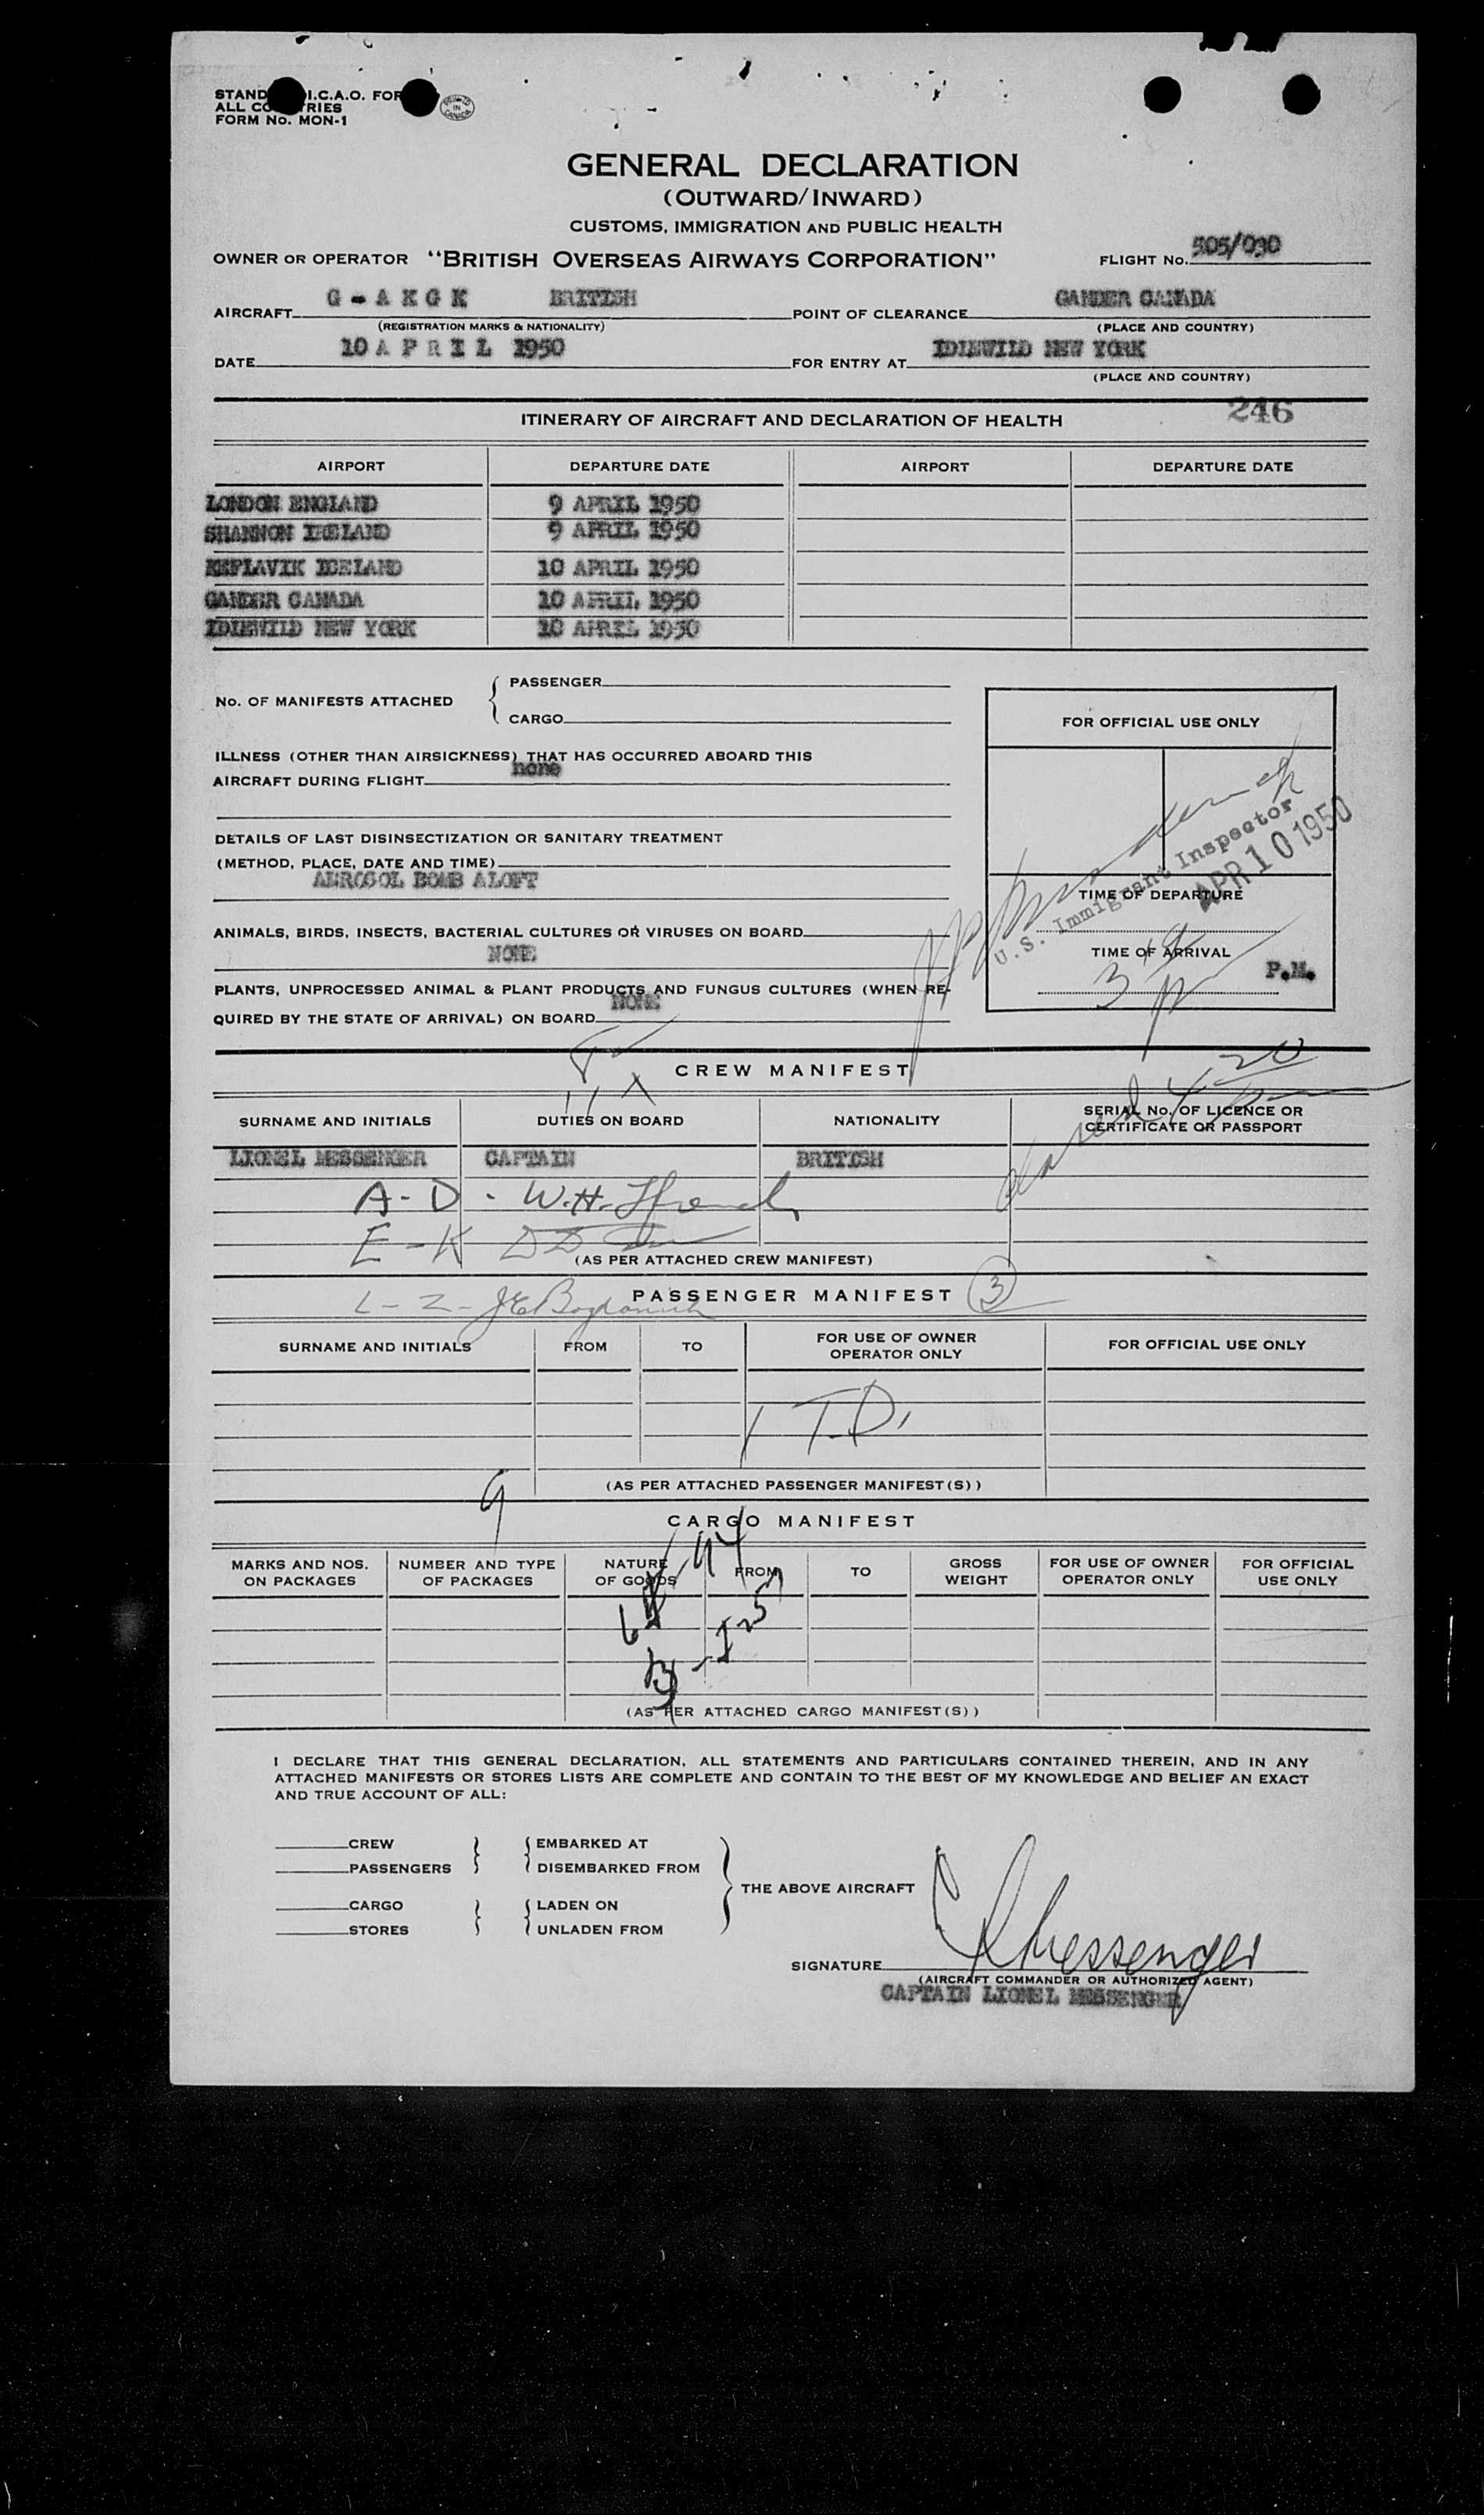 STAND I.C.A.O. FOR
ALL CO TRIES
FORM No. MON-1
IN CANADA
GENERAL DECLARATION
(OUTWARD/INWARD)
CUSTOMS, IMMIGRATION AND PUBLIC HEALTH
OWNER OR OPERATOR "BRITISH OVERSEAS AIRWAYS CORPORATION" FLIGHT No. 505/090
AIRCRAFT G-AKGK BRITISH POINT OF CLEARANCE GANDER CANADA
(REGISTRATION MARKS & NATIONALITY) (PLACE AND COUNTRY)
DATE 10 APRIL 1950 FOR ENTRY AT IDLEWILD NEW YORK
(PLACE AND COUNTRY)
246
ITINERARY OF AIRCRAFT AND DECLARATION OF HEALTH
AIRPORT DEPARTURE DATE AIRPORT DEPARTURE DATE
LONDON ENGLAND 9 APRIL 1950
SHANNON IRELAND 9 APRIL 1950
KEFLAVIK ICELAND 10 APRIL 1950
GANDER CANADA 10 APRIL 1950
IDLEWILD NEW YORK 10 APRIL 1950
No. OF MANIFESTS ATTACHED { PASSENGER
CARGO
FOR OFFICIAL USE ONLY
ILLNESS (OTHER THAN AIRSICKNESS) THAT HAS OCCURRED ABOARD THIS
AIRCRAFT DURING FLIGHT none
DETAILS OF LAST DISINSECTIZATION OR SANITARY TREATMENT
(METHOD, PLACE, DATE AND TIME)
AEROSOL BOMB ALOFT
U.S. Immigrant Inspector
APR 10 1950
TIME OF DEPARTURE
ANIMALS, BIRDS, INSECTS, BACTERIAL CULTURES OR VIRUSES ON BOARD
NONE
TIME OF ARRIVAL
P.M.
PLANTS, UNPROCESSED ANIMAL & PLANT PRODUCTS AND FUNGUS CULTURES (WHEN RE-
NONE
QUIRED BY THE STATE OF ARRIVAL) ON BOARD
CREW MANIFEST
SURNAME AND INITIALS DUTIES ON BOARD NATIONALITY SERIAL No. OF LICENCE OR
CERTIFICATE OR PASSPORT
LIONEL MESSENGER CAPTAIN BRITISH
A-D - W.H. French
E-K
(AS PER ATTACHED CREW MANIFEST)
L-Z - J E Bogdanich
PASSENGER MANIFEST 3
SURNAME AND INITIALS FROM TO FOR USE OF OWNER
OPERATOR ONLY FOR OFFICIAL USE ONLY
1 T.D.
(AS PER ATTACHED PASSENGER MANIFEST(S))
9
CARGO MANIFEST
MARKS AND NOS.
ON PACKAGES NUMBER AND TYPE
OF PACKAGES NATURE
OF GOODS FROM TO GROSS
WEIGHT FOR USE OF OWNER
OPERATOR ONLY FOR OFFICIAL
USE ONLY
(AS PER ATTACHED CARGO MANIFEST(S))
I DECLARE THAT THIS GENERAL DECLARATION, ALL STATEMENTS AND PARTICULARS CONTAINED THEREIN, AND IN ANY
ATTACHED MANIFESTS OR STORES LISTS ARE COMPLETE AND CONTAIN TO THE BEST OF MY KNOWLEDGE AND BELIEF AN EXACT
AND TRUE ACCOUNT OF ALL:
CREW EMBARKED AT
PASSENGERS DISEMBARKED FROM
THE ABOVE AIRCRAFT
CARGO LADEN ON
STORES UNLADEN FROM
SIGNATURE Messenger
(AIRCRAFT COMMANDER OR AUTHORIZED AGENT)
CAPTAIN LIONEL MESSENGER